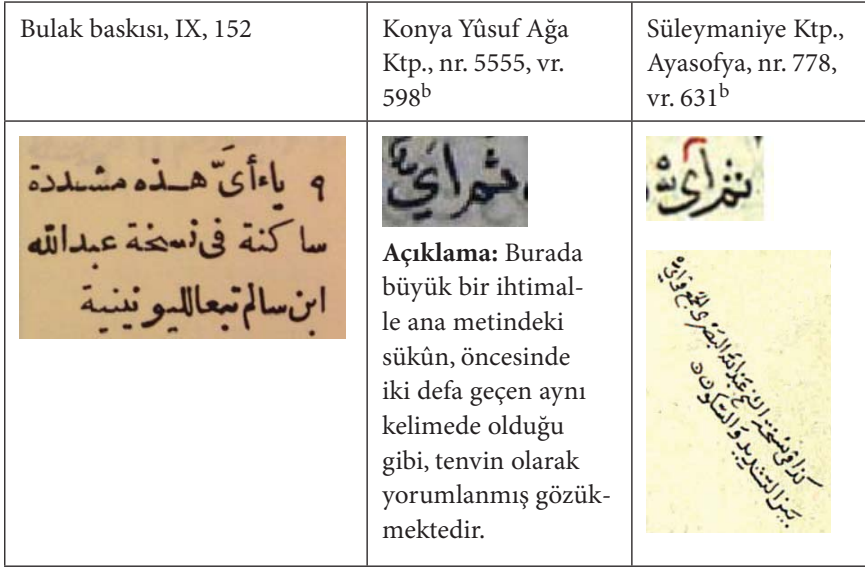 Bulak baskısı, IX, 152
Konya Yûsuf Ağa
Ktp., nr. 5555, vr.
598b
Süleymaniye Ktp.,
Ayasofya, nr. 778,
vr. 631b
٩ ياء أىّ هذه مشددة
ساكنة فى نسخة عبدالله
ابن سالم تبعا لليونينية
ثم أي
Açıklama: Burada
büyük bir ihtimal-
le ana metindeki
sükûn, öncesinde
iki defa geçen aynı
kelimede olduğu
gibi, tenvin olarak
yorumlanmış gözük-
mektedir.
ثم أي
كذا في نسخة الشيخ عبد الله البصري
بين التشديد والسكون